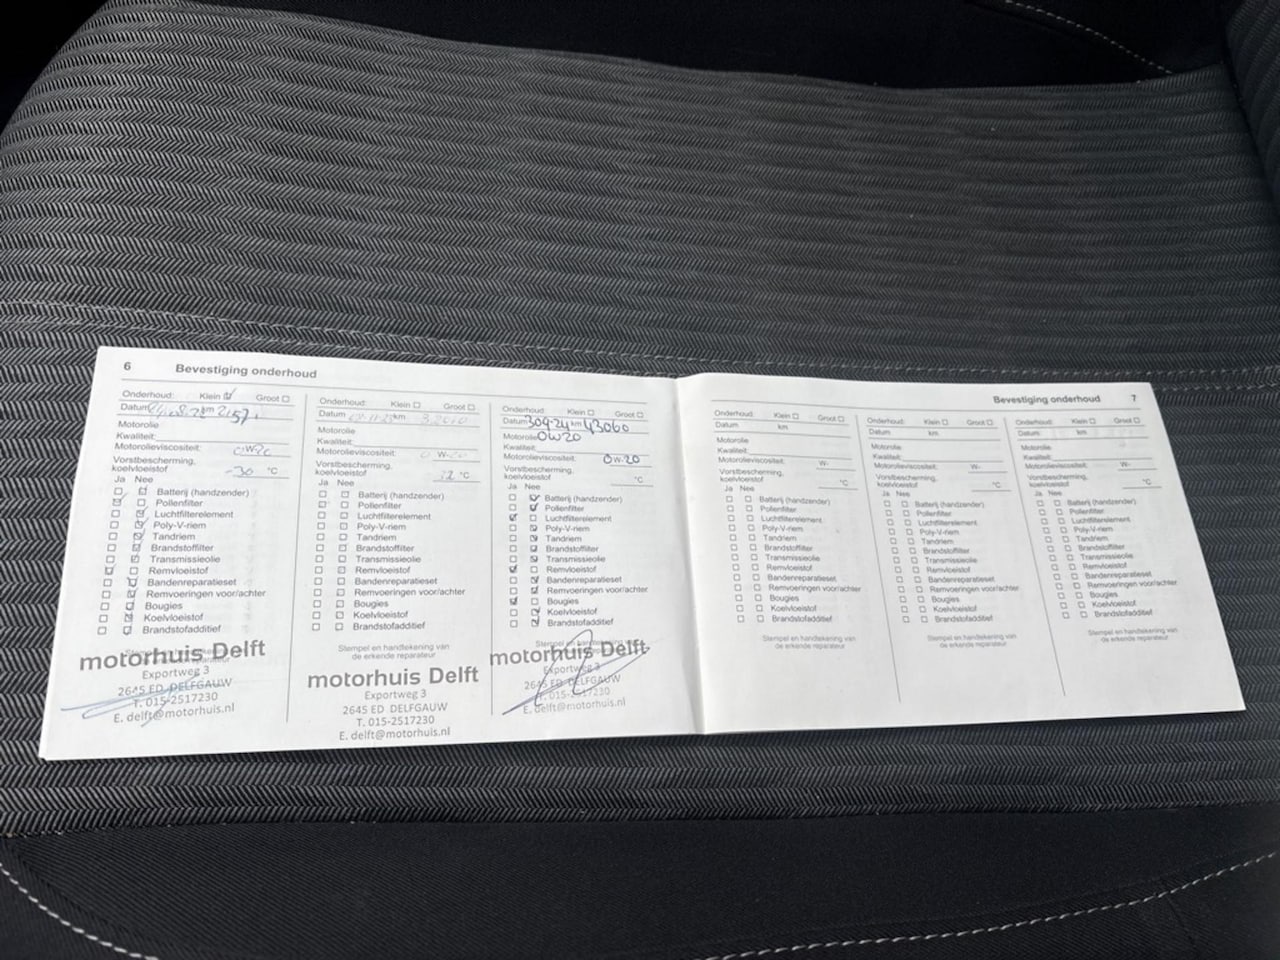 6 Bevestiging onderhoud
Onderhoud: Klein Groot
Datum km
Motorolie
Kwaliteit:
Motorolieviscositeit: 0W20
Vorstbescherming,
koelvloeistof -30 °C
Ja Nee
Batterij (handzender)
Pollenfilter
Luchtfilterelement
Poly-V-riem
Tandriem
Brandstoffilter
Transmissieolie
Remvloeistof
Bandenreparatieset
Remvoeringen voor/achter
Bougies
Koelvloeistof
Brandstofadditief
motorhuis Delft
Exportweg 3
2645 ED DELFGAUW
T. 015-2517230
E. delft@motorhuis.nl
Onderhoud: Klein Groot
Datum km
Motorolie
Kwaliteit:
Motorolieviscositeit: 0 W-20
Vorstbescherming,
koelvloeistof °C
Ja Nee
Batterij (handzender)
Pollenfilter
Luchtfilterelement
Poly-V-riem
Tandriem
Brandstoffilter
Transmissieolie
Remvloeistof
Bandenreparatieset
Remvoeringen voor/achter
Bougies
Koelvloeistof
Brandstofadditief
Stempel en handtekening van
de erkende reparateur
motorhuis Delft
Exportweg 3
2645 ED DELFGAUW
T. 015-2517230
E. delft@motorhuis.nl
Onderhoud: Klein Groot
Datum 30-9-24 km 43060
Motorolie 0W20
Kwaliteit:
Motorolieviscositeit: 0W-20
Vorstbescherming,
koelvloeistof °C
Ja Nee
Batterij (handzender)
Pollenfilter
Luchtfilterelement
Poly-V-riem
Tandriem
Brandstoffilter
Transmissieolie
Remvloeistof
Bandenreparatieset
Remvoeringen voor/achter
Bougies
Koelvloeistof
Brandstofadditief
Stempel en handtekening van
motorhuis Delft
Exportweg 3
2645 ED DELFGAUW
T. 015-2517230
E. delft@motorhuis.nl
Bevestiging onderhoud 7
Onderhoud: Klein Groot
Datum km
Motorolie
Kwaliteit:
Motorolieviscositeit: W-
Vorstbescherming,
koelvloeistof °C
Ja Nee
Batterij (handzender)
Pollenfilter
Luchtfilterelement
Poly-V-riem
Tandriem
Brandstoffilter
Transmissieolie
Remvloeistof
Bandenreparatieset
Remvoeringen voor/achter
Bougies
Koelvloeistof
Brandstofadditief
Stempel en handtekening van
de erkende reparateur
Onderhoud: Klein Groot
Datum km
Motorolie
Kwaliteit:
Motorolieviscositeit: W-
Vorstbescherming,
koelvloeistof °C
Ja Nee
Batterij (handzender)
Pollenfilter
Luchtfilterelement
Poly-V-riem
Tandriem
Brandstoffilter
Transmissieolie
Remvloeistof
Bandenreparatieset
Remvoeringen voor/achter
Bougies
Koelvloeistof
Brandstofadditief
Stempel en handtekening van
de erkende reparateur
Onderhoud: Klein Groot
Datum km
Motorolie
Kwaliteit:
Motorolieviscositeit: W-
Vorstbescherming,
koelvloeistof °C
Ja Nee
Batterij (handzender)
Pollenfilter
Luchtfilterelement
Poly-V-riem
Tandriem
Brandstoffilter
Transmissieolie
Remvloeistof
Bandenreparatieset
Remvoeringen voor/achter
Bougies
Koelvloeistof
Brandstofadditief
Stempel en handtekening van
de erkende reparateur